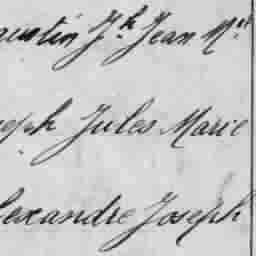 ustin Jh Jean Mie
seph Jules Marie
lexandre Joseph